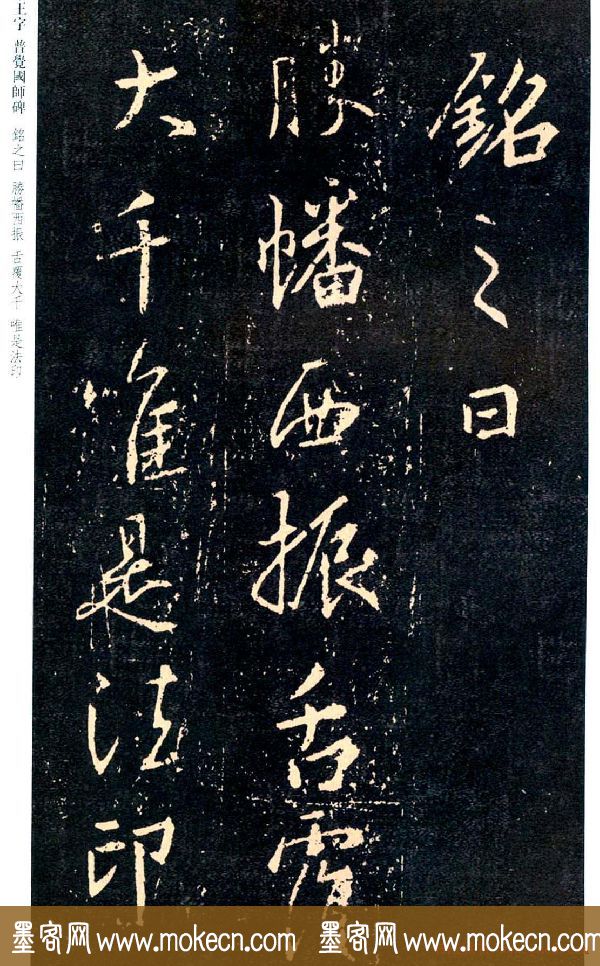 銘之曰
勝幡西振舌覆
大千唯是法印
王字 普覺國師碑 銘之曰 勝幡西振 舌覆大千 唯是法印
墨客网 www.mokecn.com 墨客网 www.mokecn.com